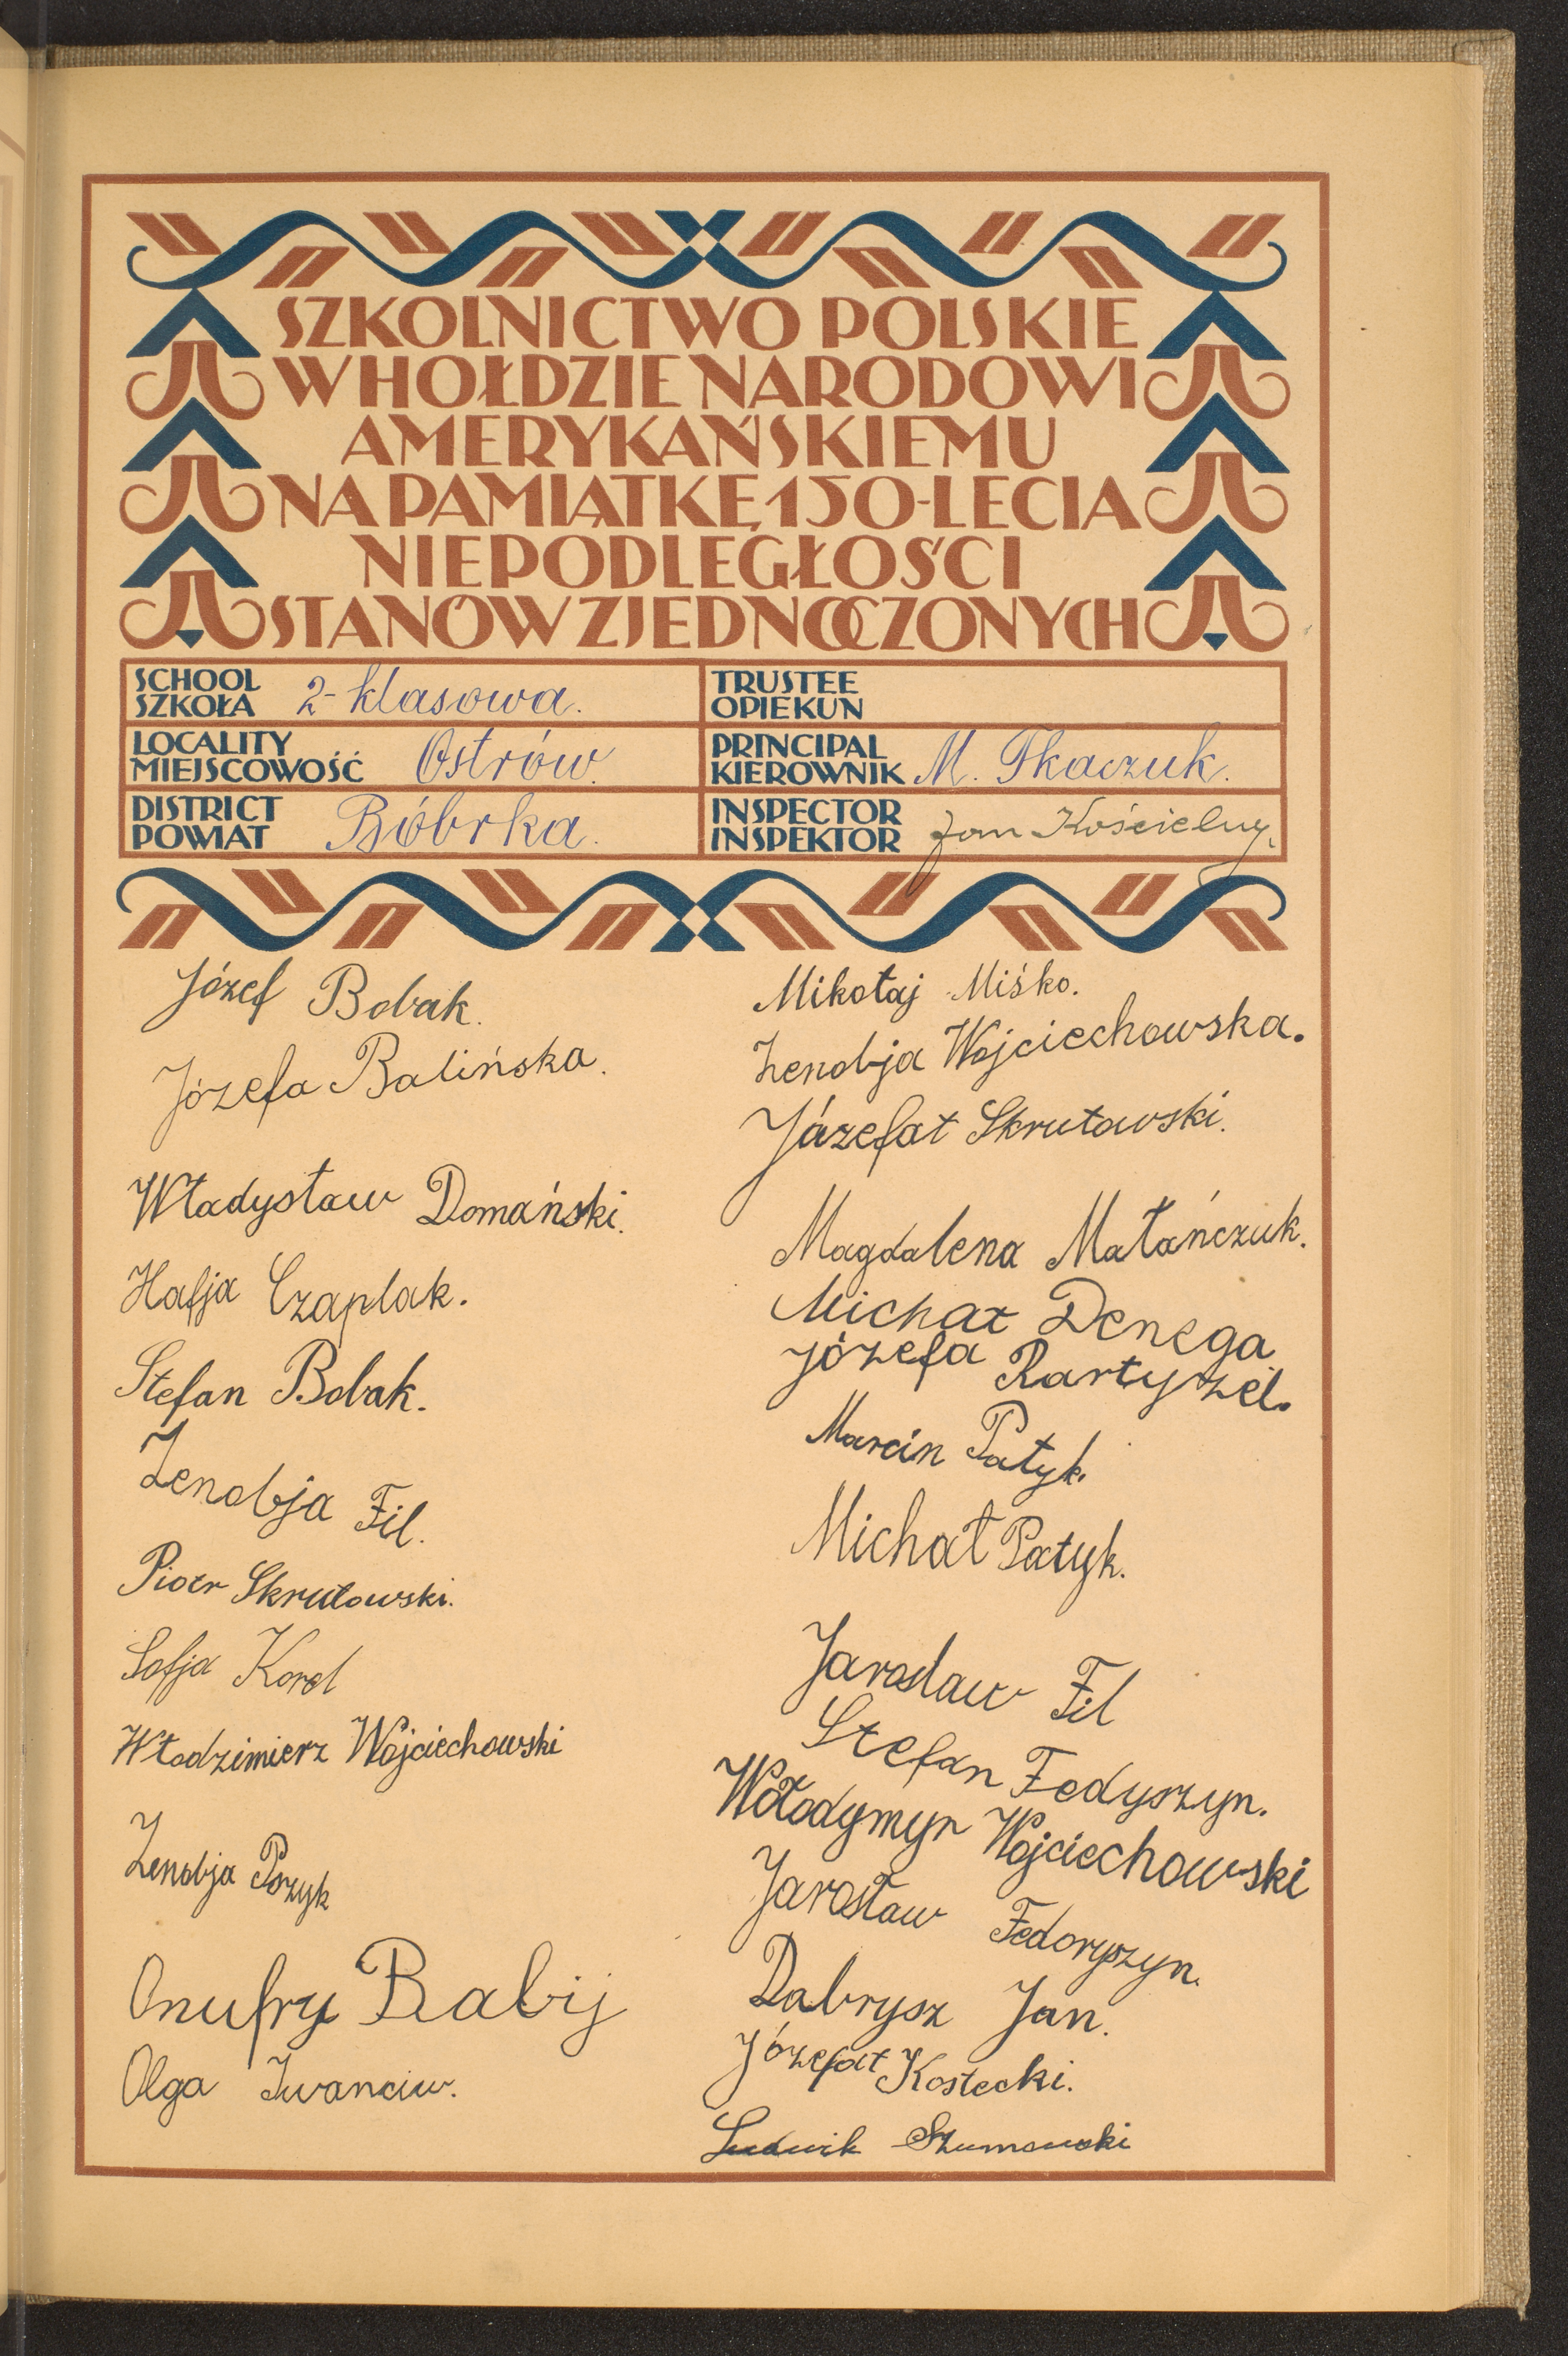 SZKOLNICTWO POLSKIE
W HOŁDZIE NARODOWI
AMERYKAŃSKIEMU
NA PAMIĄTKĘ 150-LECIA
NIEPODLEGŁOŚCI
STANÓW ZJEDNOCZONYCH
SCHOOL
SZKOŁA 2-klasowa.
TRUSTEE
OPIEKUN
LOCALITY
MIEJSCOWOŚĆ Ostrów.
PRINCIPAL
KIEROWNIK M. Tkaczuk.
DISTRICT
POWIAT Bóbrka.
INSPECTOR
INSPEKTOR Jan Kościelny.
Józef Bobak.
Józefa Balińska.
Władysław Domański.
Hafja Czaplak.
Stefan Bobak.
Zenobja Fil.
Piotr Skrutowski.
Sofja Korol
Włodzimierz Wojciechowski
Zenobja
Onufry Babij
Olga Iwanciw.
Mikołaj Miśko.
Zenobja Wojciechowska.
Józefat Skrutowski.
Magdalena Małańczuk.
Michał Denega
Józefa Bartyzel.
Marcin Patyk.
Michał Patyk.
Jarosław Fil
Stefan Fedyszyn.
Wołodymyr Wojciechowski
Jarosław Fedoryszyn.
Dabrysz Jan.
Józefat Kostecki.
Ludwik Szumowski